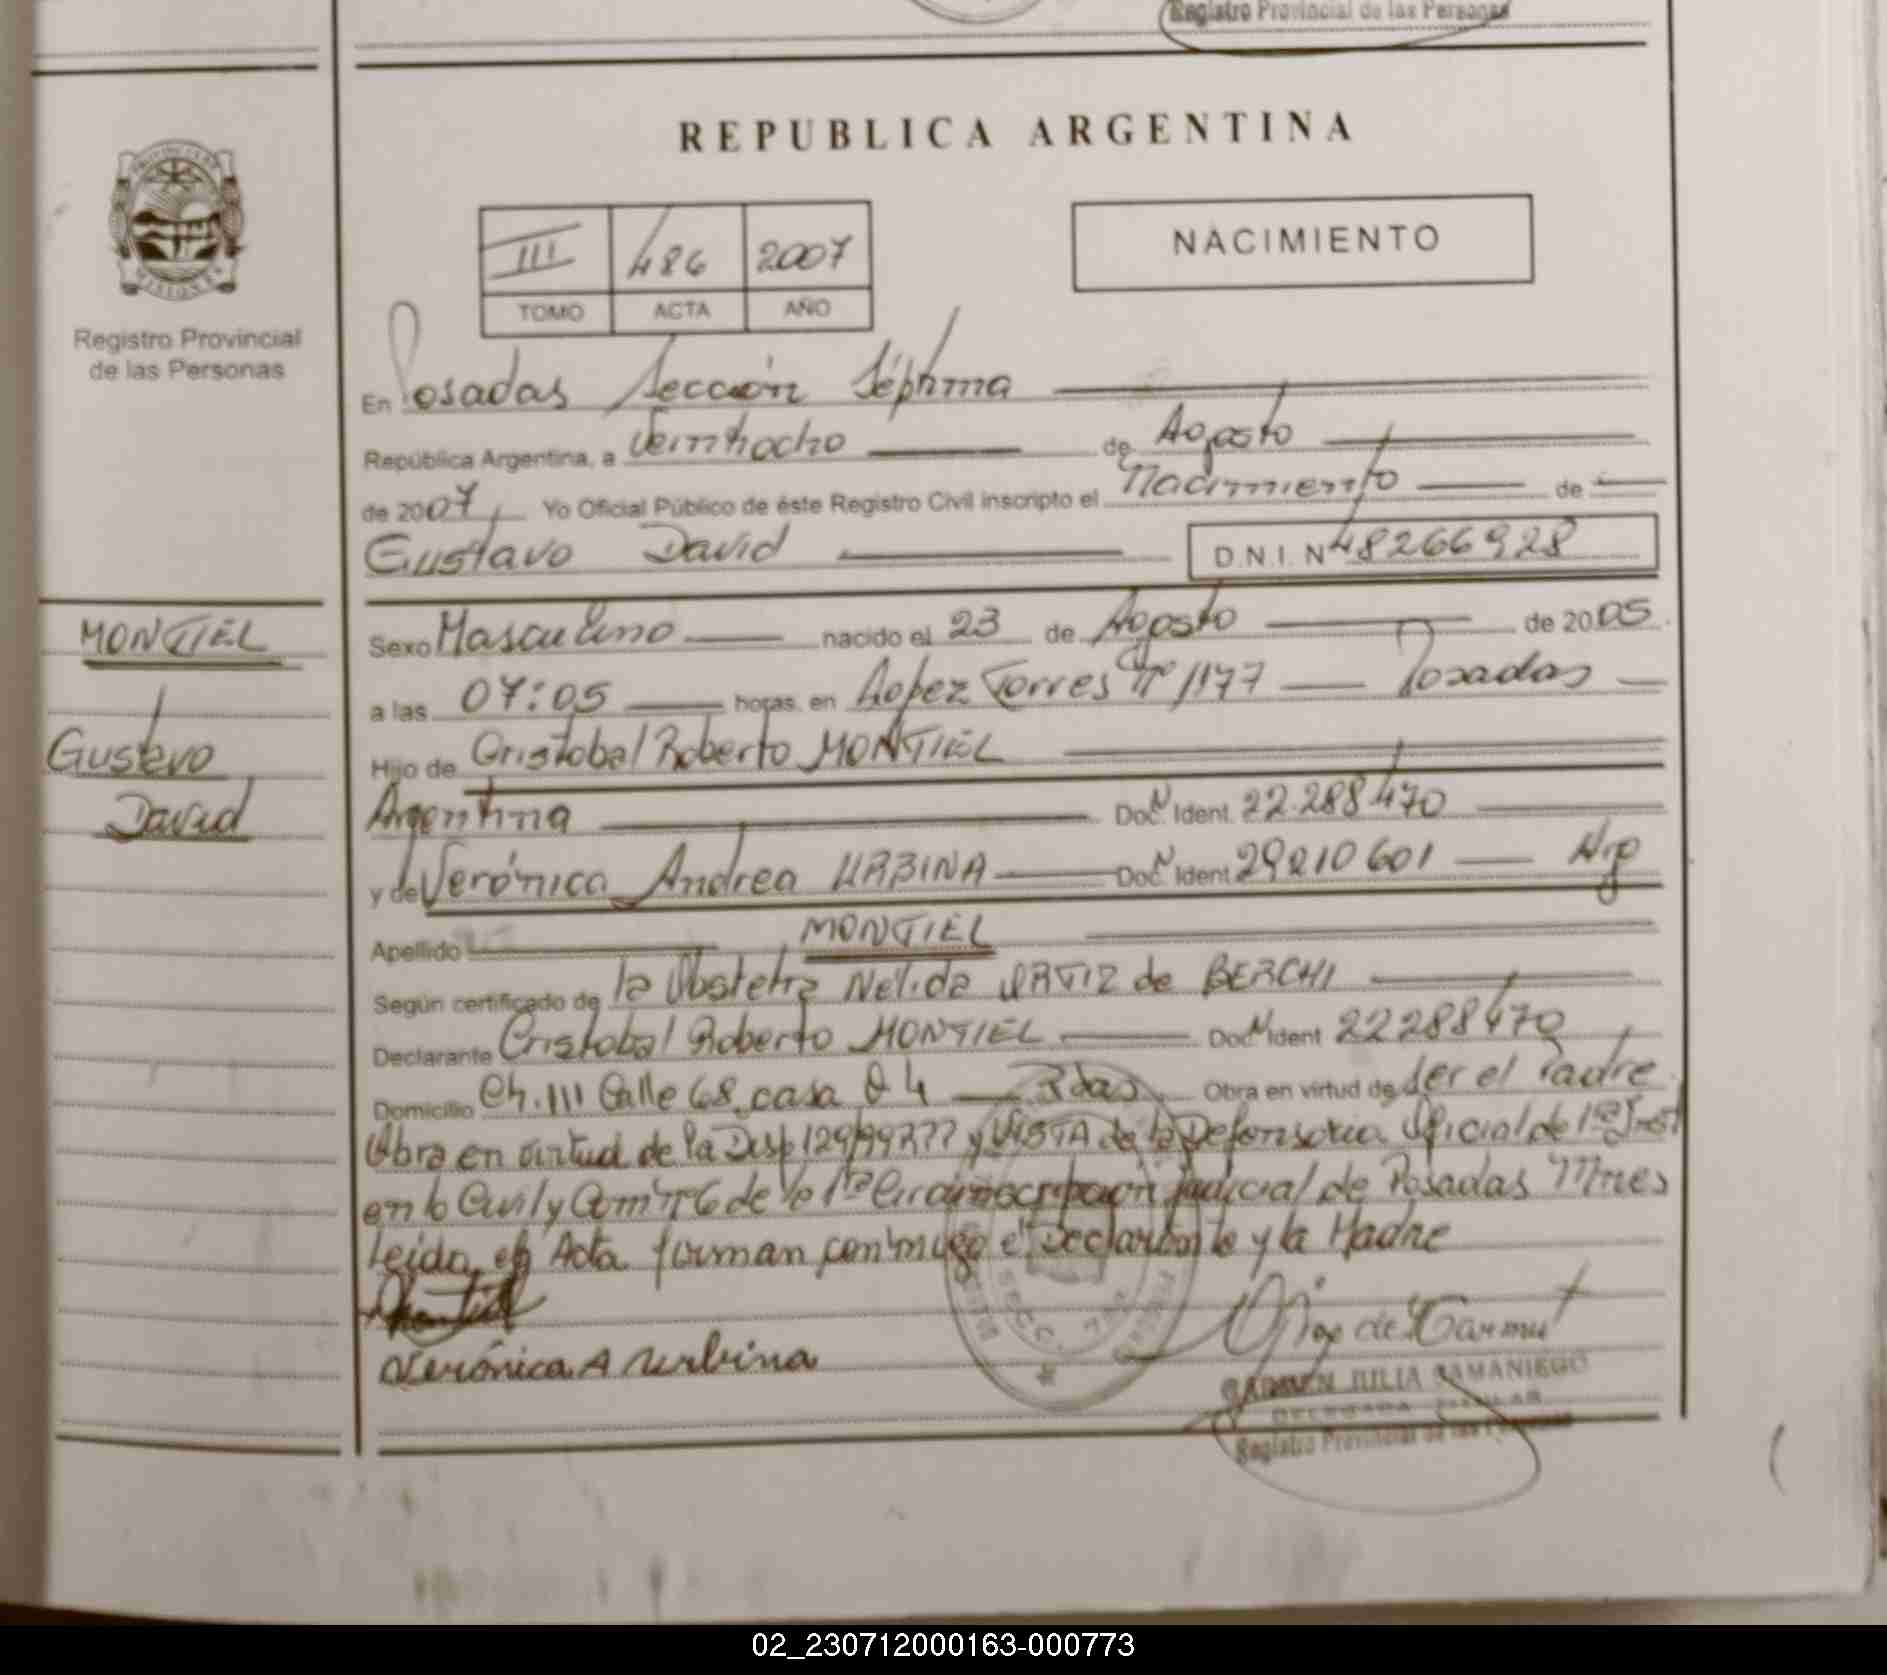 Registro Provincial de las Personas
REPUBLICA ARGENTINA
III 486 2007
TOMO ACTA AÑO
NACIMIENTO
Registro Provincial
de las Personas
En Posadas Sección Séptima
República Argentina, a Veintiocho de Agosto
de 2007, Yo Oficial Público de éste Registro Civil inscripto el Nacimiento de
Gustavo David D.N.I. Nº 48266928
MONTIEL
Gustavo
David
Sexo Masculino nacido el 23 de Agosto de 2005
a las 07:05 horas, en Lopez Torres Nº 1177 Posadas
Hijo de Cristobal Roberto MONTIEL
Argentina Doc. N Ident. 22.288470
y de Verónica Andrea URBINA Doc. N Ident 29210601 Arg
Apellido MONTIEL
Según certificado de la Obstetra Nelida ORTIZ de BERCHI
Declarante Cristobal Roberto MONTIEL Doc. N Ident 22288470
Domicilio Ch. 111 Calle 68 casa 04 Pdas Obra en virtud de Ser el Padre
Obra en virtud de la Disp 129/99 y VISTA de la Defensoria Oficial de 1ra Inst
en lo Civil y Com Nº 6 de la 1ra Circunscripción judicial de Posadas Mnes
Leida el Acta firman conmigo el Declarante y la Madre
Montiel
Verónica A Urbina
SECC. 7ma
CARMEN JULIA SAMANIEGO
DELEGADA TITULAR
Registro Provincial de las Personas
02_230712000163-000773